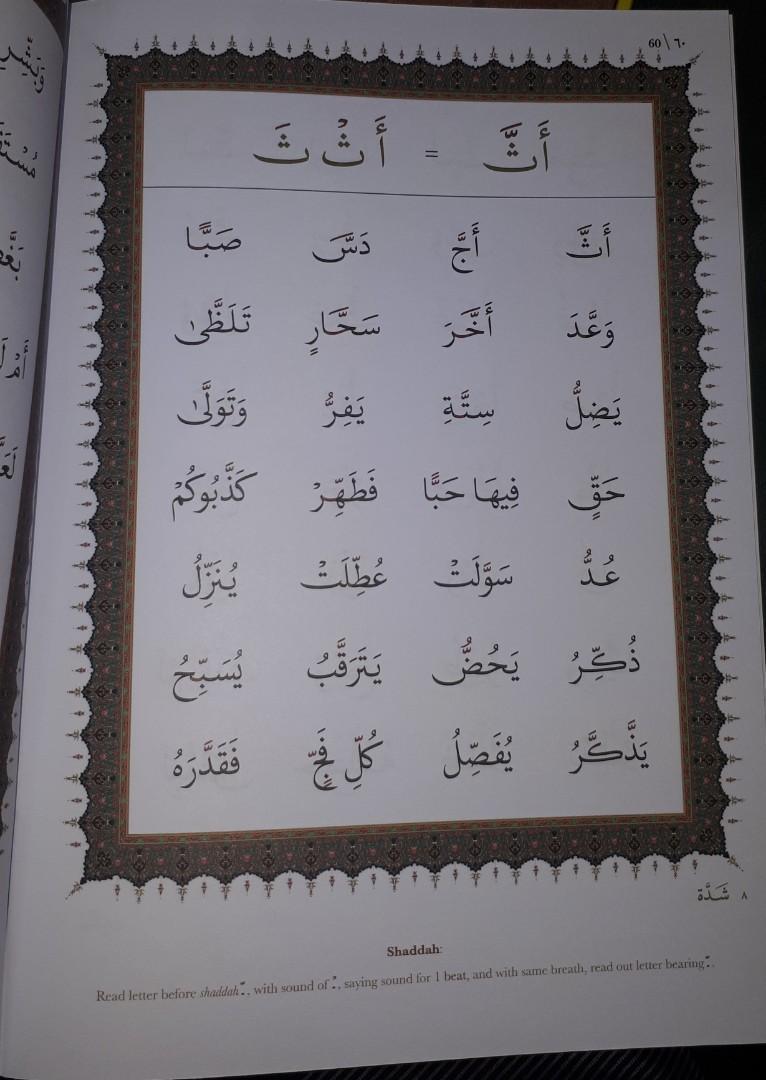 60 \ ٦٠
أَثَّ = أَ ثْ ثَ
أَثَّ أَجَّ دَسَّ صَبًّا
وَعَّدَ أَخَّرَ سَحَّارٍ تَلَظَّىٰ
يَضِلُّ سِتَّةِ يَفِرُّ وَتَوَلَّىٰ
حَقٍّ فِيهَا حَبًّا فَطَهِّرْ كَذَّبُوكُمْ
عُدُّ سَوَّلَتْ عُطِّلَتْ يُنَزِّلُ
ذُكِّرُ يَحُضُّ يَتَرَقَّبُ يُسَبِّحُ
يَذَّكَّرُ يُفَصِّلُ كُلِّ فَجٍّ فَقَدَّرَهُ
٨ شَدَّة
Shaddah:
Read letter before shaddah ّ , with sound of ْ , saying sound for 1 beat, and with same breath, read out letter bearing ّ .